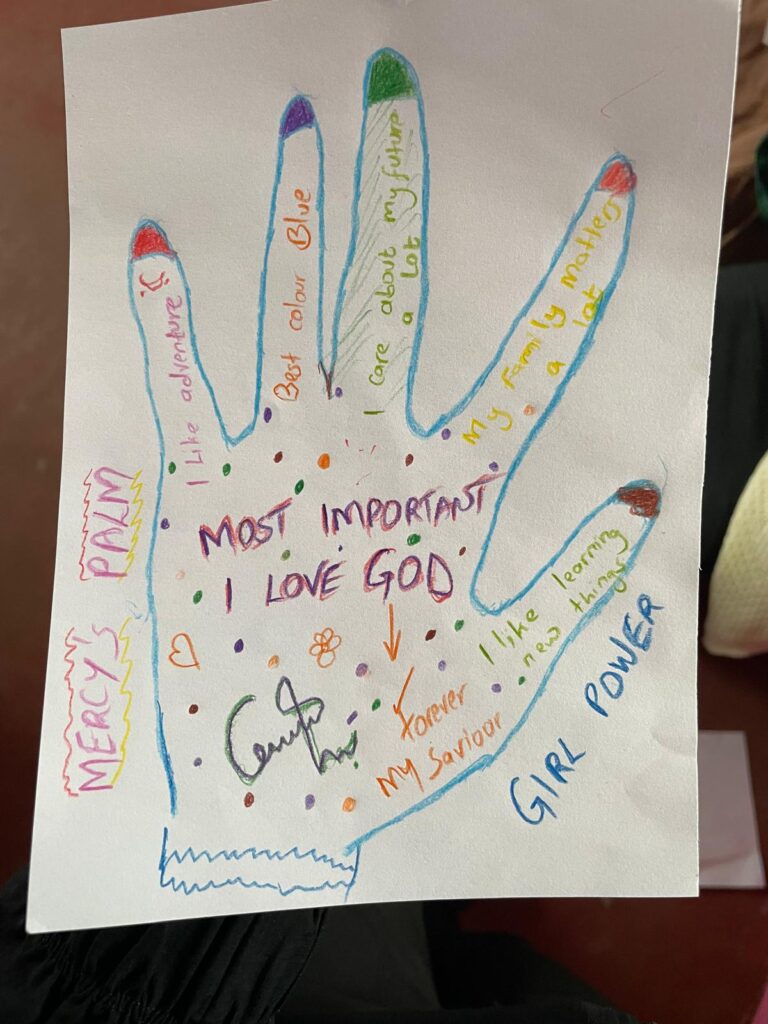 MERCY'S PALM
I Like adventure
Best colour Blue
I care about my future
a lot
My Family Matters
a lot
I like learning
new things
MOST IMPORTANT
I LOVE GOD
Forever
My Saviour
GIRL POWER